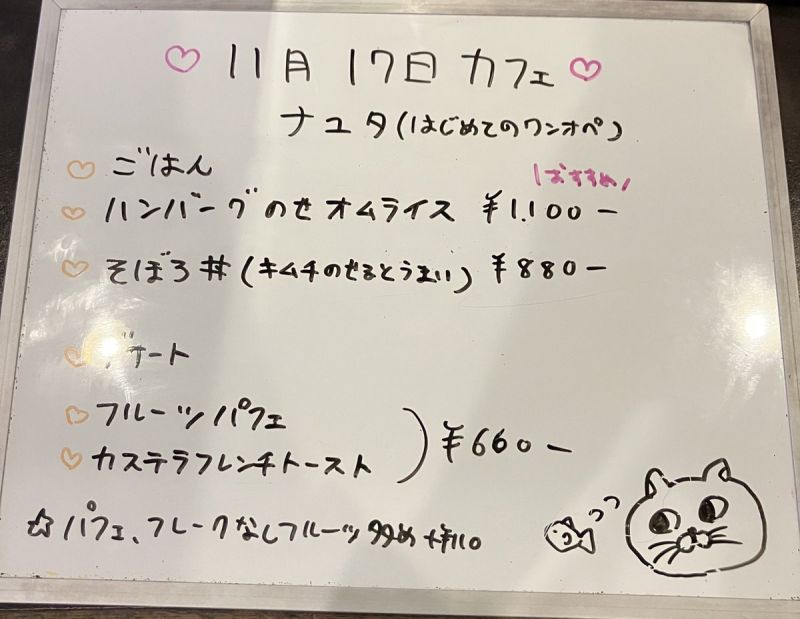 ♡ 11月 17日 カフェ ♡
ナユタ(はじめてのワンオペ)
♡ ごはん
おすすめ!
♡ ハンバーグのせオムライス ¥1.100ー
♡ そぼろ丼(キムチのせるとうまい) ¥880ー
♡ デザート
♡ フルーツパフェ
♡ カステラフレンチトースト
)¥660ー
☆パフェ、フレークなしフルーツ多め +¥110